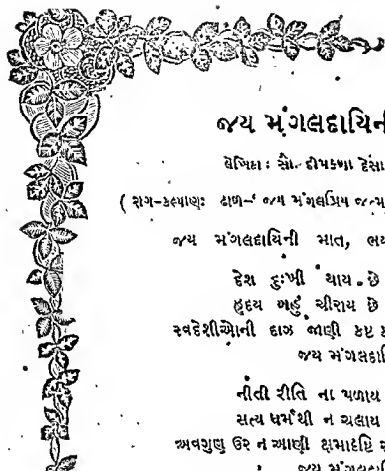 જય મંગલદાયિની
લેખિકા : સૌ. દીપકબા દેસા
( રાગ-કલ્યાણ: ઢાળ-‘ જય મંગલપ્રિય જન્મ
જય મંગલદાયિની માત, ભય
દેશ દુઃખી થાય છે
હૃદય બહું ચીરાય છે
સ્વદેશીઓની દાઝ જાણી કષ્ટ
જય મંગલદાયિ
નીતી રીતિ ના પળાય
સત્ય ધર્મથી ન ચલાય
અવગુણ ઉર ન આણી ક્ષમાદષ્ટિ
જય મંગલદાયિ